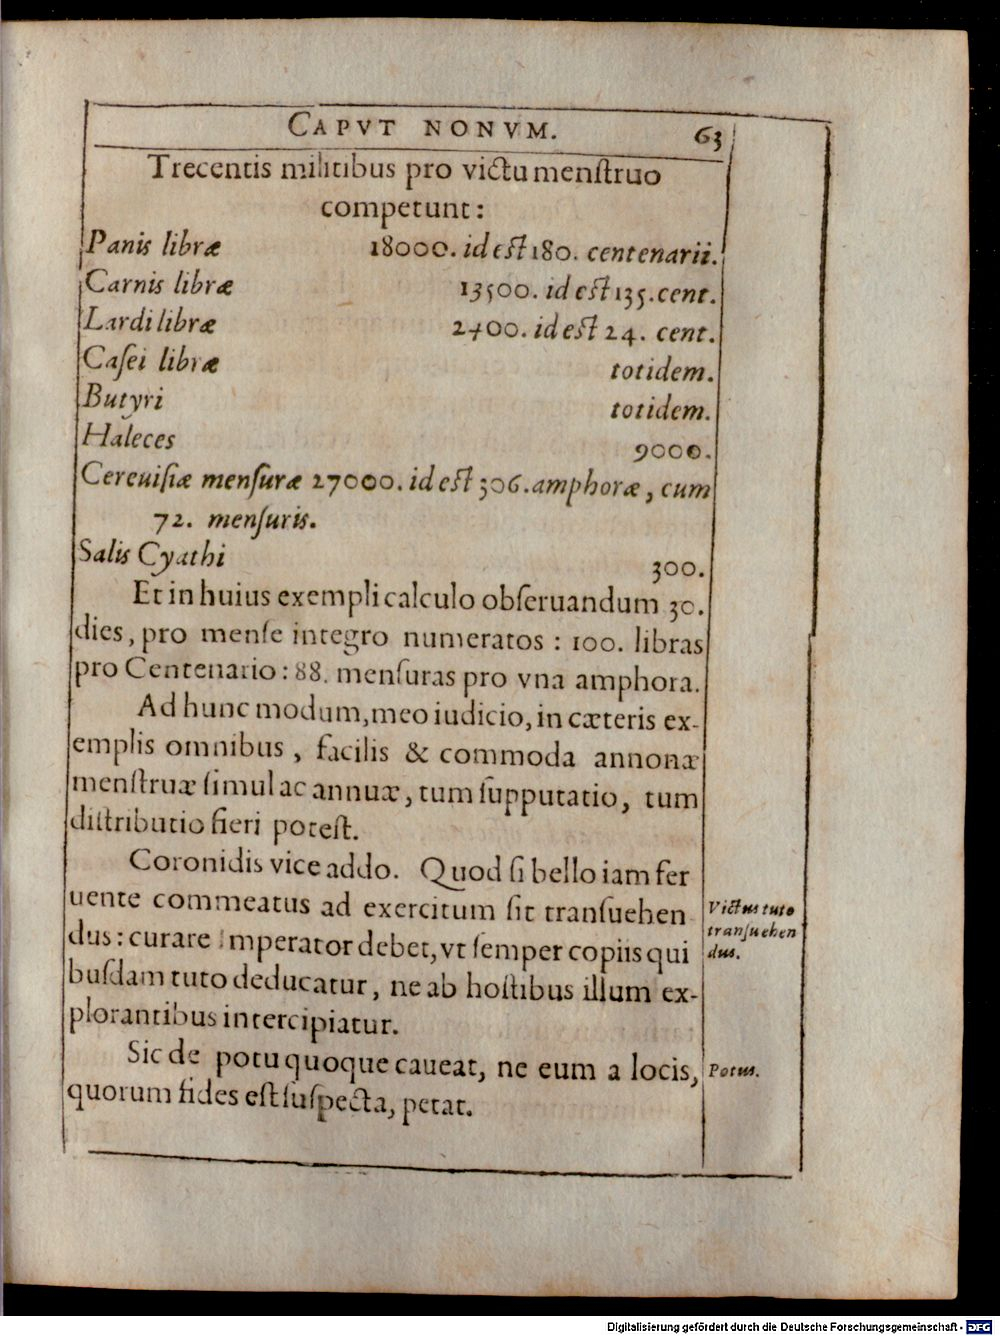 CAPVT NONVM. 63
Trecentis militibus pro victu menſtruo
competunt:
Panis libræ 18000. id eſt 180. centenarii.
Carnis libræ 13500. id eſt 135. cent.
Lardi libræ 2400. id eſt 24. cent.
Caſei libræ totidem.
Butyri totidem.
Haleces 9000.
Cereuiſiæ menſuræ 27000. id eſt 306. amphoræ, cum
72. menſuris.
Salis Cyathi 300.
Et in huius exempli calculo obſeruandum 30.
dies, pro menſe integro numeratos: 100. libras
pro Centenario: 88. menſuras pro vna amphora.
Ad hunc modum, meo iudicio, in cæteris ex-
emplis omnibus, facilis & commoda annonæ
menſtruæ ſimul ac annuæ, tum ſupputatio, tum
diſtributio fieri poteſt.
Coronidis vice addo. Quod ſi bello iam fer
uente commeatus ad exercitum ſit tranſuehen
dus: curare Imperator debet, vt ſemper copiis qui
buſdam tuto deducatur, ne ab hoſtibus illum ex-
plorantibus intercipiatur.
Victus tuto
tranſuehen
dus.
Sic de potu quoque caueat, ne eum a locis,
quorum fides eſt ſuſpecta, petat.
Potus.
Digitalisierung gefördert durch die Deutsche Forschungsgemeinschaft - DFG